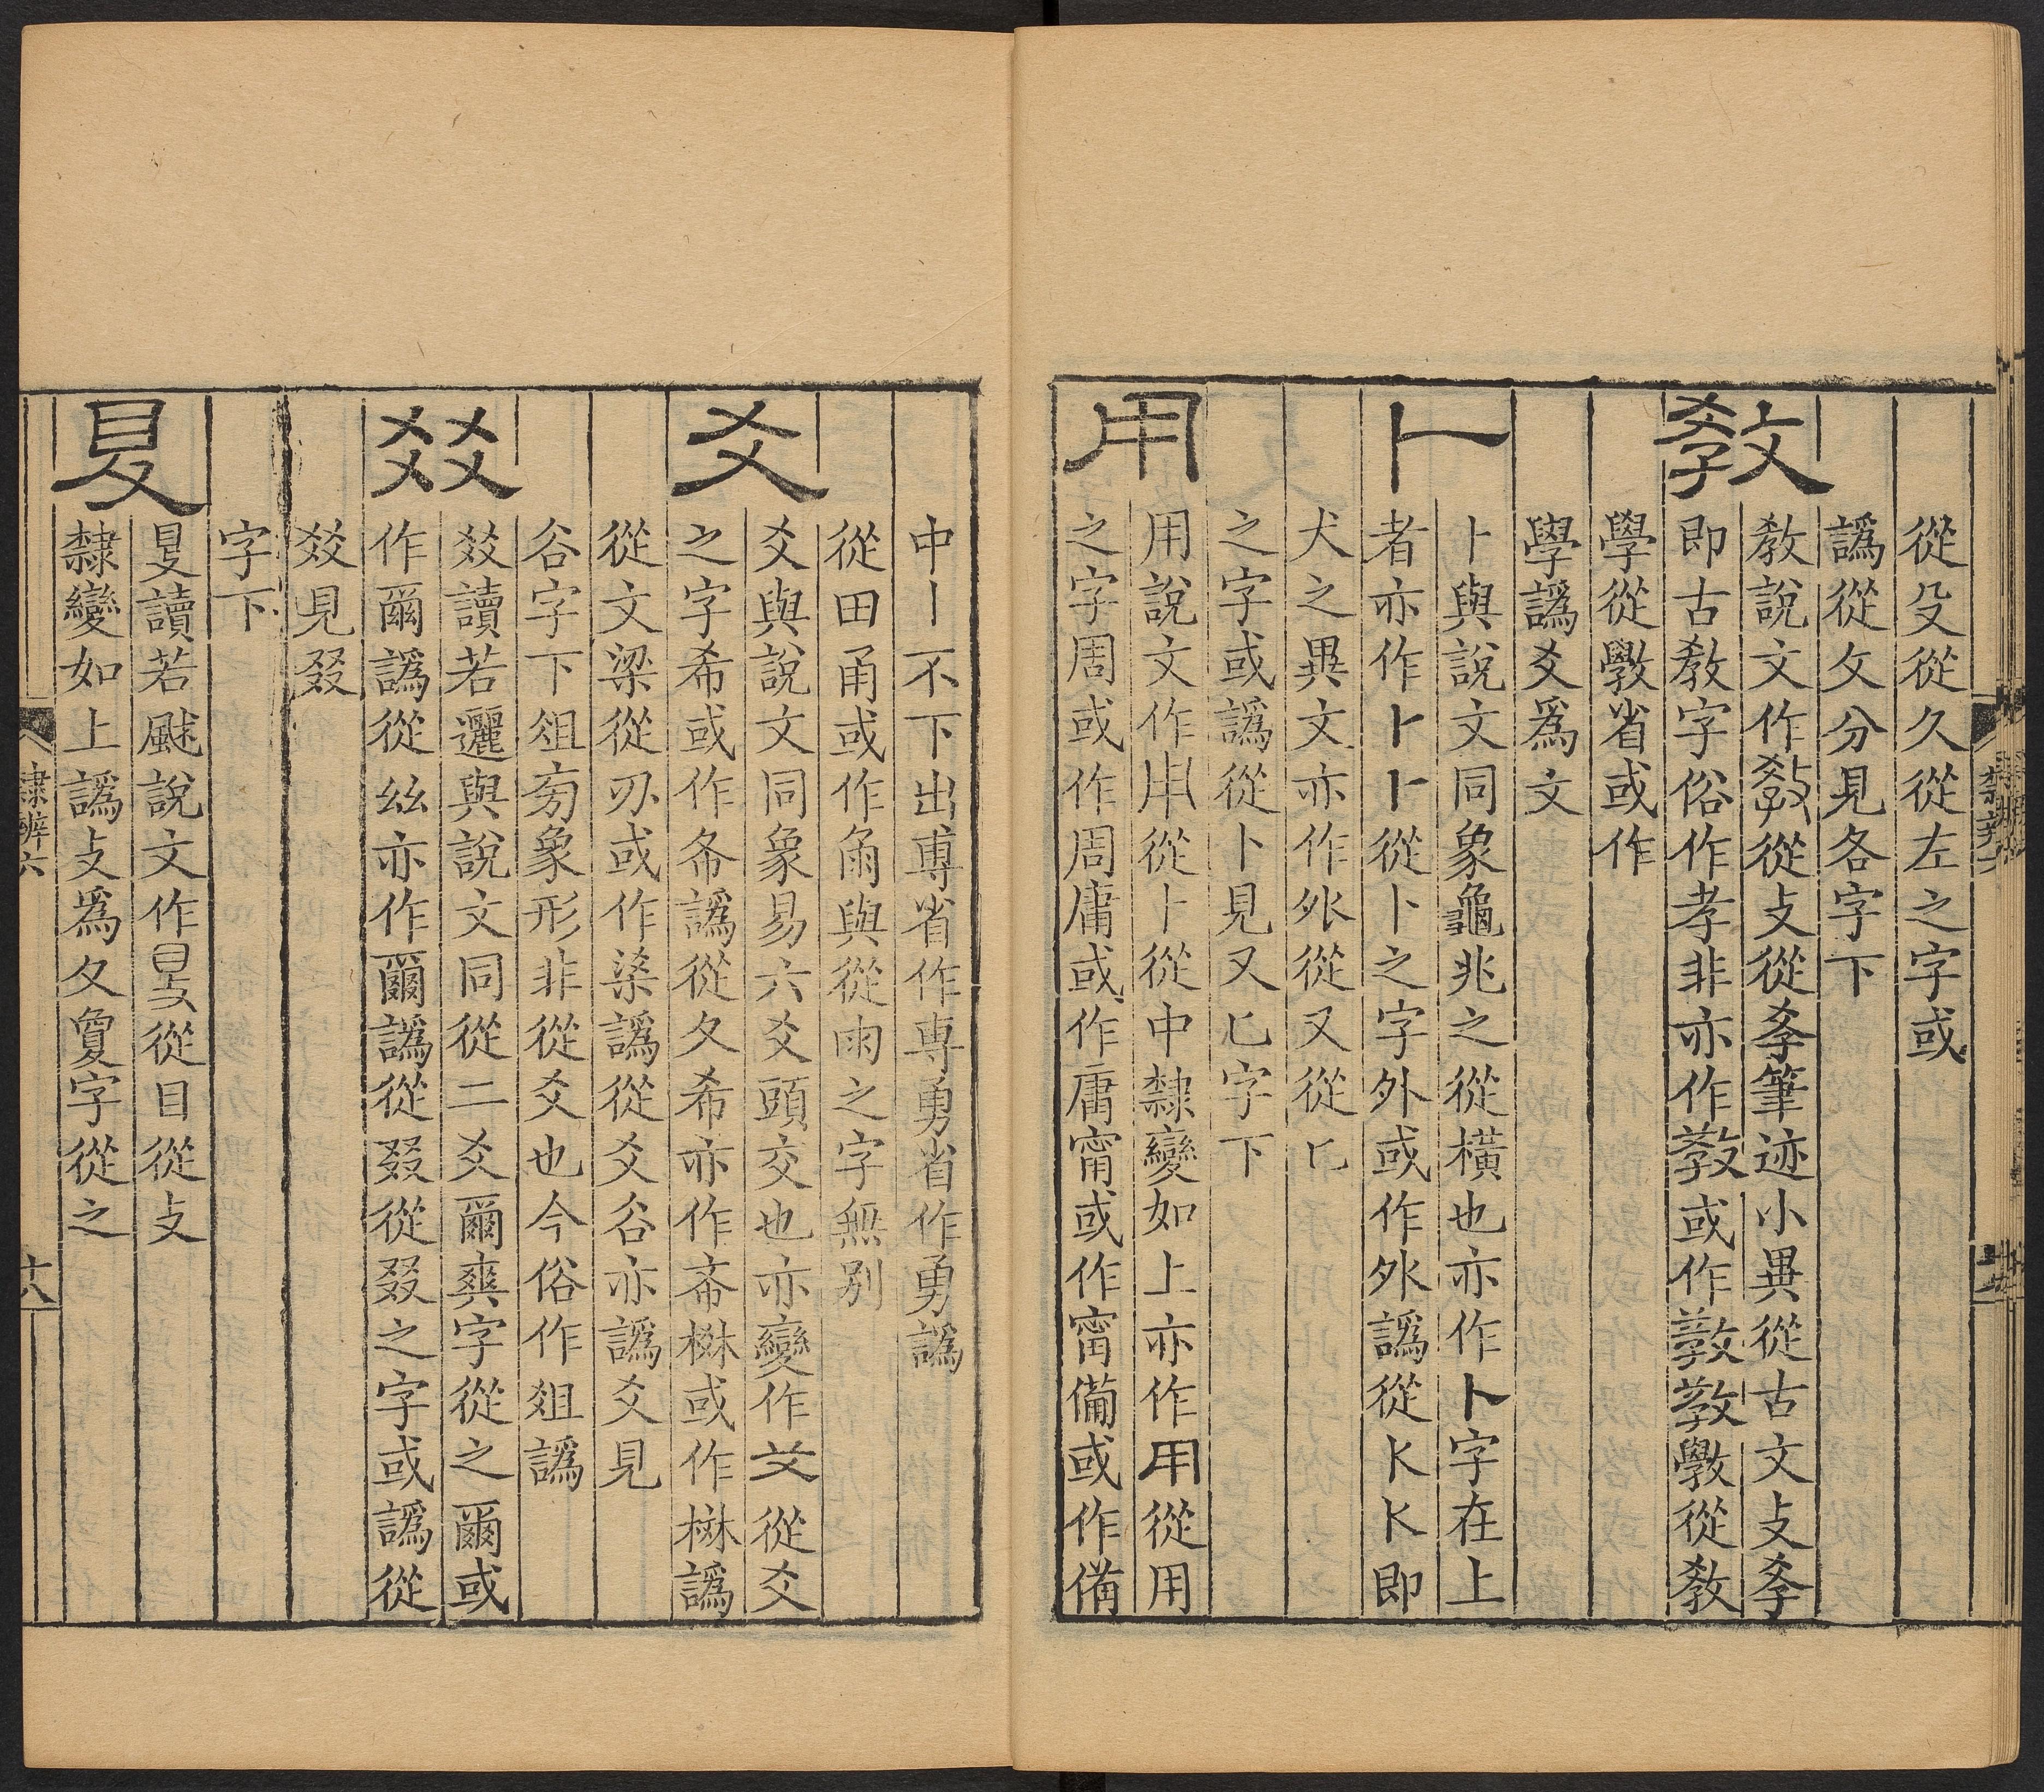 從殳從久從左之字或
譌從攵分見各字下
教
教說文作𢽾從攴從𡥈筆迹小異從古文攴𡥈
即古教字俗作孝非亦作敎或作斆從教
學從斆省或作
學譌爻爲文
卜
卜與說文同象龜兆之從橫也亦作卜字在上
者亦作⺊⺊從卜之字外或作外譌從
犬之異文亦作外從又從匕
之字或譌從卜見又匕字下
用
用說文作𤰃從卜從中隸變如上亦作用從用
之字周或作周庸或作庸甯或作甯備或作俻
中丨不下出專省作専勇省作勇譌
從田甬或作角與從雨之字無別
爻
爻與說文同象易六爻頭交也亦變作从爻
之字希或作㠯譌從夂希亦作斎樷或作樷譌
從文梁從刅或作㴝譌從爻谷亦譌爻見
谷字下俎𠣎象形非從爻也今俗作爼譌
㸚
㸚讀若邐與說文同從二爻爾爽字從之爾或
作爾譌從𢆶亦作爾譌從叕從叕之字或譌從
㸚見叕
字下
夏
𥄎讀若䬂說文作𥄎從目從攴
隸變如上譌攴爲夂敻字從之
隸辨六
十八